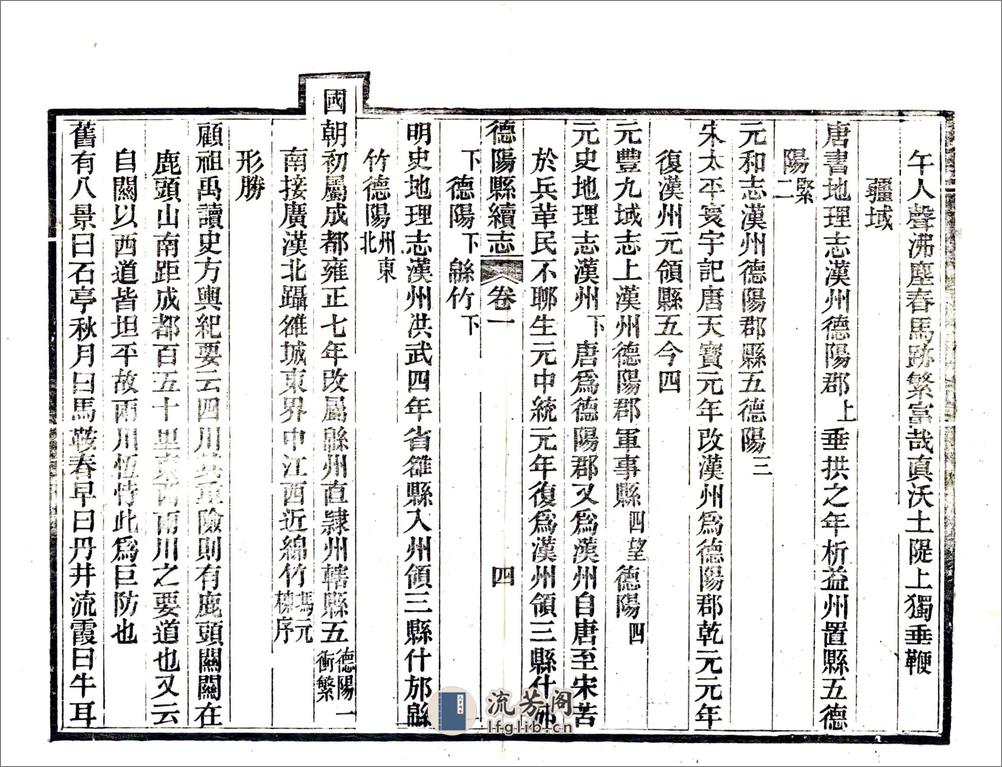 午人聲沸塵春馬跡繁富哉真沃土隄上獨垂鞭
疆域
唐書地理志漢州德陽郡上垂拱之年析益州置縣五德
陽緊二
元和志漢州德陽郡縣五德陽三
宋太平寰宇記唐天寶元年改漢州爲德陽郡乾元元年
復漢州元領縣五今四
元豐九域志上漢州德陽郡軍事縣四望德陽四
元史地理志漢州下唐爲德陽郡又爲漢州自唐至宋苦
於兵革民不聊生元中統元年復爲漢州領三縣什邡
德陽縣續志 卷一 四
下德陽下緜竹下
明史地理志漢州洪武四年省雒縣入州領三縣什邡緜
竹德陽州東北
國朝初屬成都雍正七年改屬緜州直隸州轄縣五德陽一衝繁
南接廣漢北躡雒城東界中江西近綿竹馮元樑序
形勝
顧祖禹讀史方輿紀要云四川其重險則有鹿頭關關在
鹿頭山南距成都百五十里東西兩川之要道也又云
自關以西道皆坦平故兩川恆恃此爲巨防也
舊有八景曰石亭秋月曰馬鞍春早曰丹井流霞曰牛耳
流芳阁
lfglib.cn